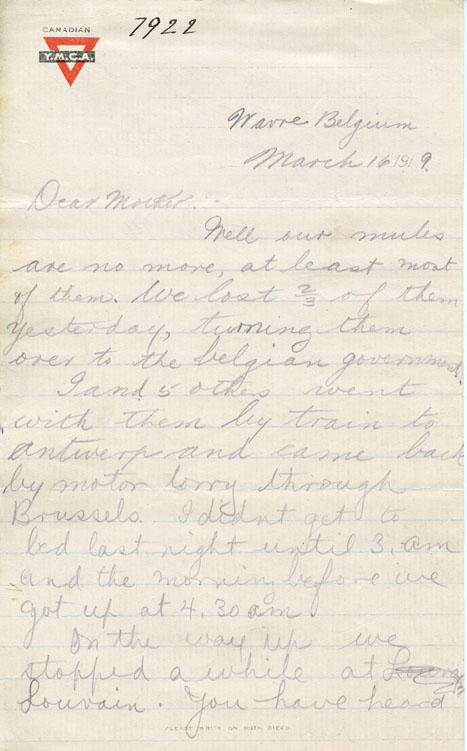 CANADIAN
Y.M.C.A.
7922
Wavre Belgium
March 16 1919.
Dear Mother:-
Well our mules
are no more, at least most
of them. We lost 2/3 of them
yesterday, turning them
over to the belgian government.
I and 5 others went
with them by train to
antwerp and came back
by motor lorry through
Brussels. I didnt get to
bed last night until 3. am
and the morning before we
got up at 4.30 am.
On the way up we
stopped a while at
Louvain. You have heard
PLEASE WRITE ON BOTH SIDES